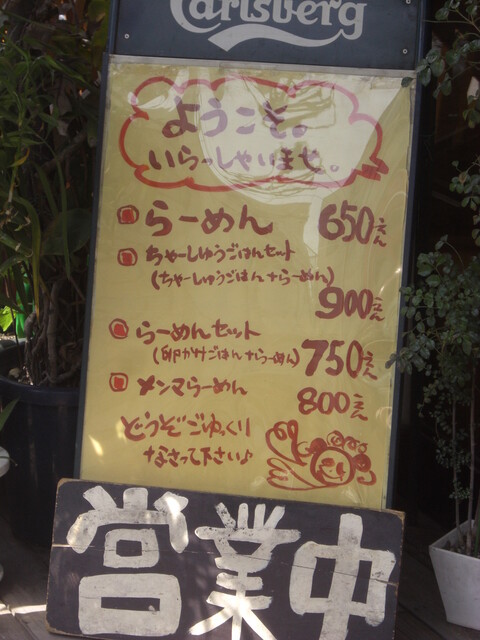 Carlsberg
ようこそ。
いらっしゃいませ。
らーめん 650えん
ちゃーしゅうごはんセット
(ちゃーしゅうごはん+らーめん)
900えん
らーめんセット
(卵かけごはん+らーめん) 750えん
メンマらーめん 800えん
どうぞごゆっくり
なさって下さい♪
営業中